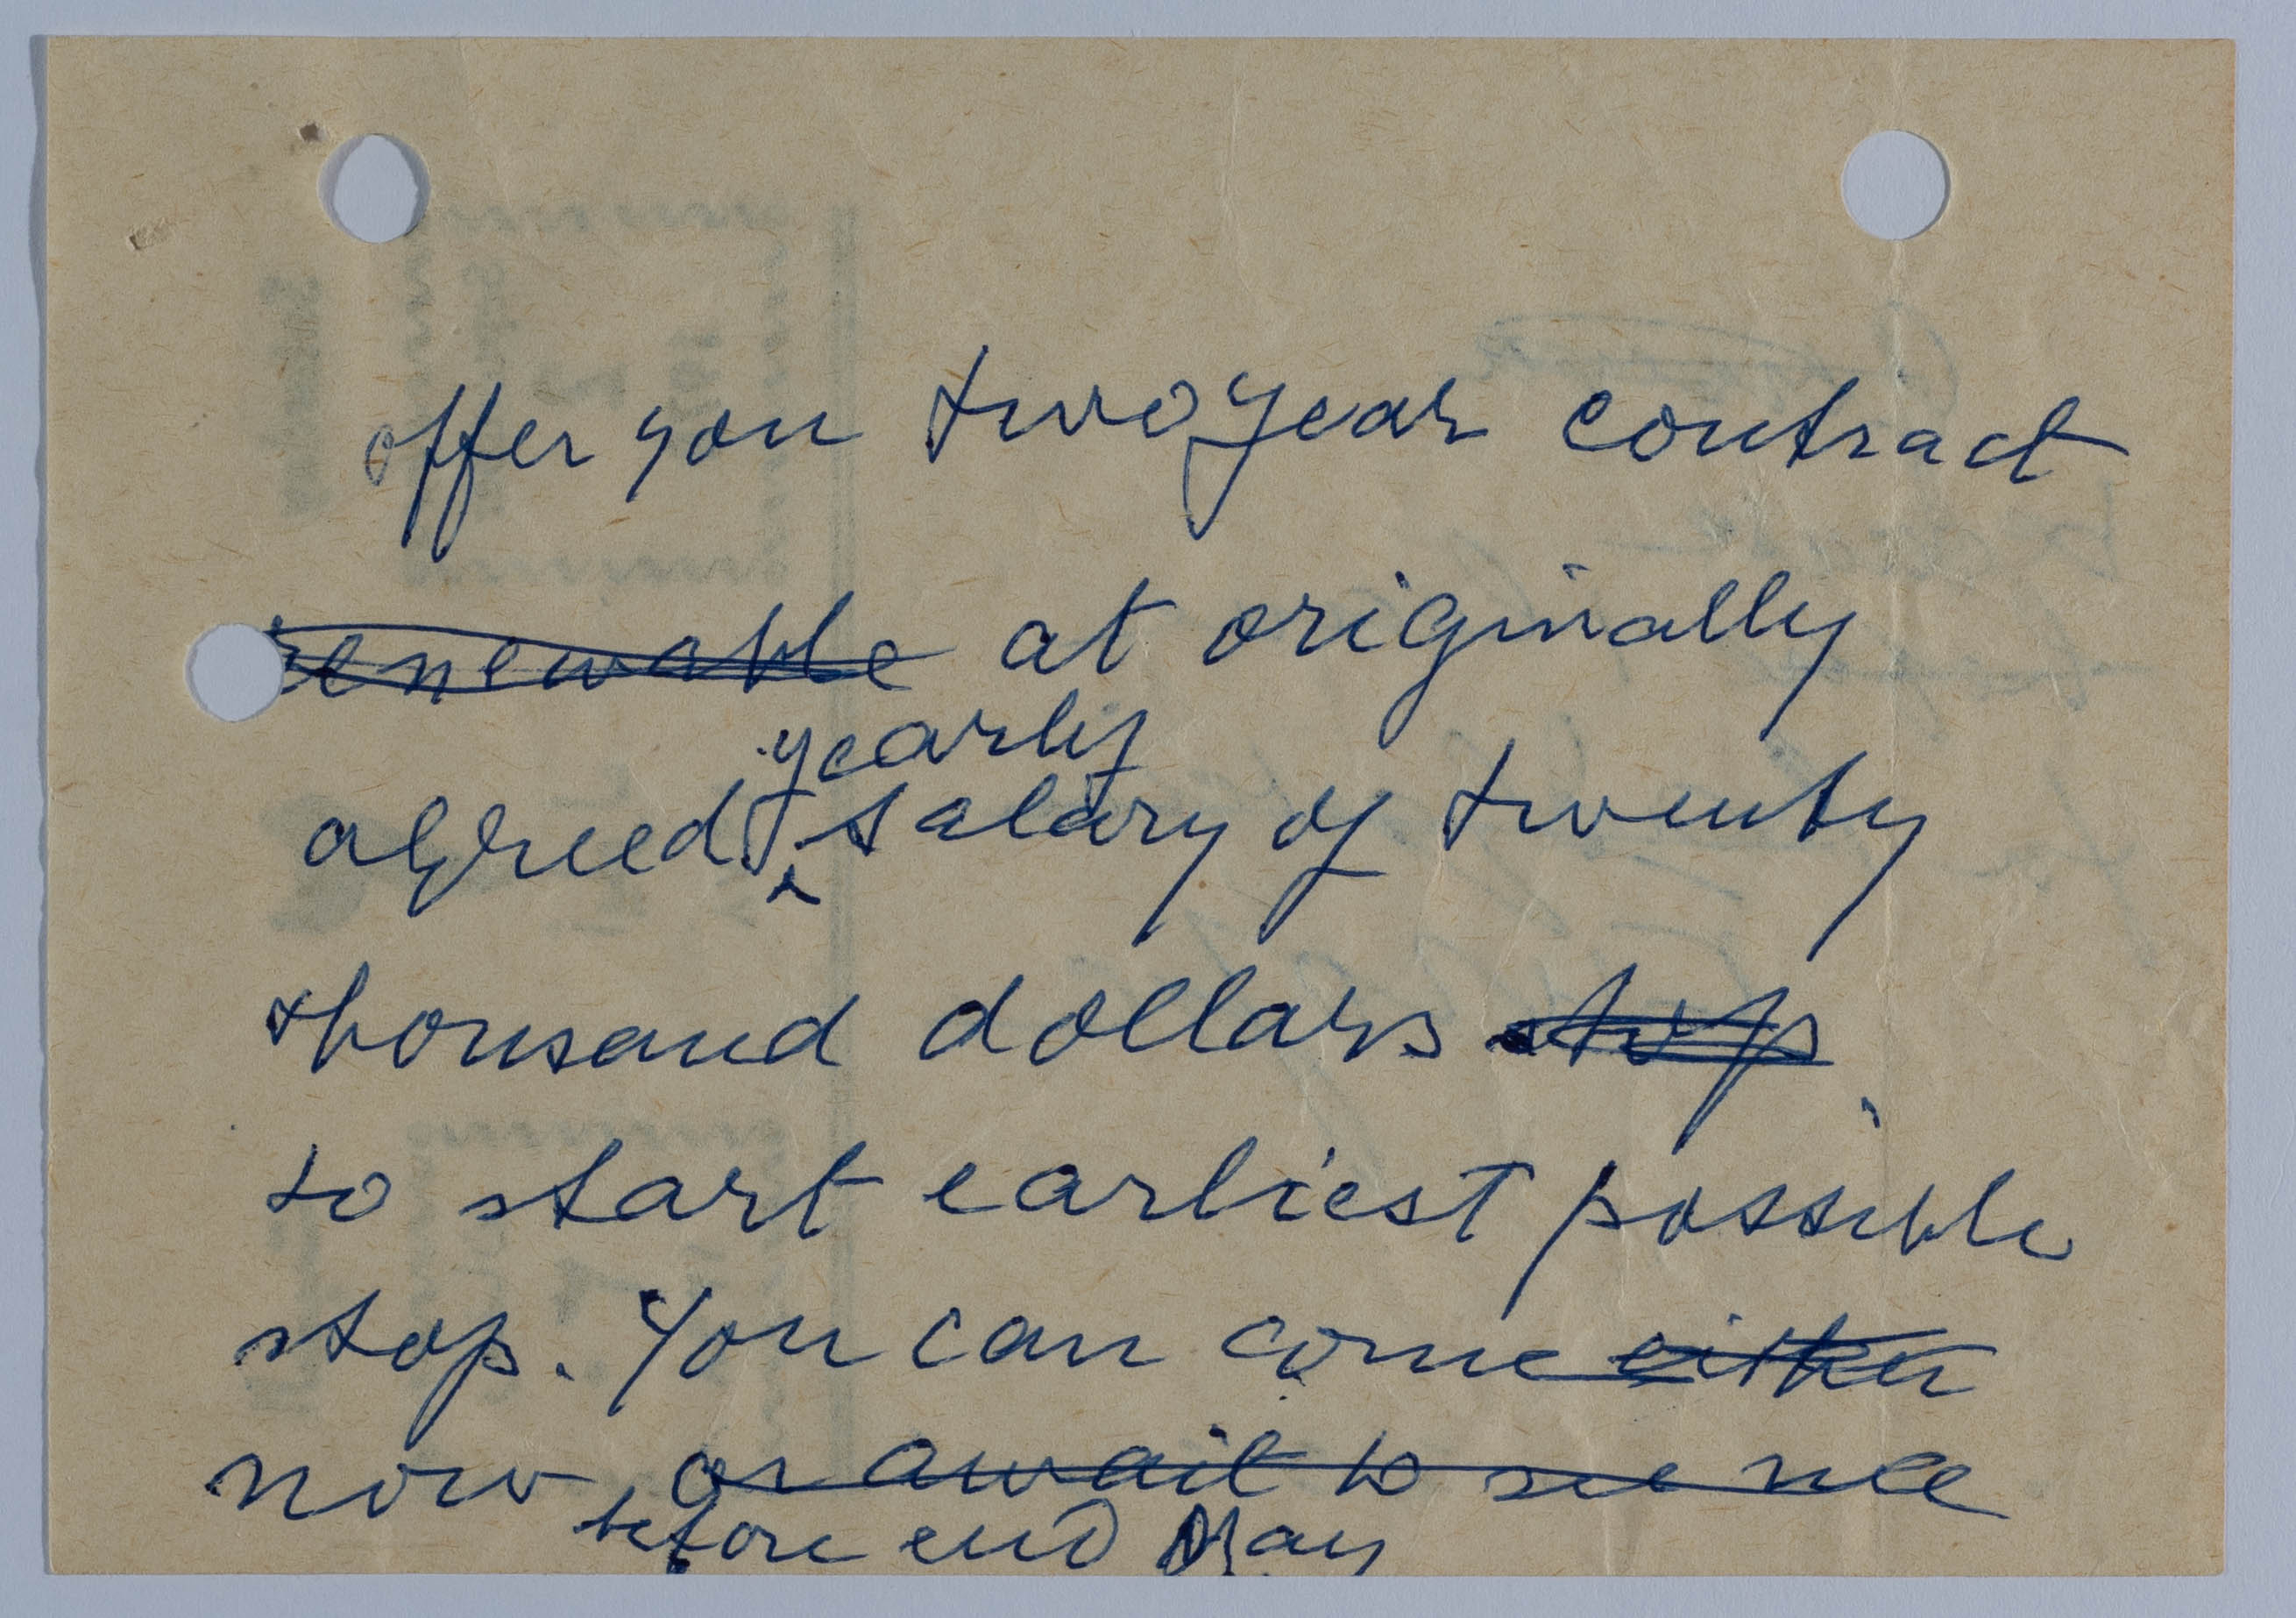 offer you two year contract
renewable at originally
yearly
agreed salary of twenty
thousand dollars stop
to start earliest possible
stop. You can come either
now or await to see me
before end May